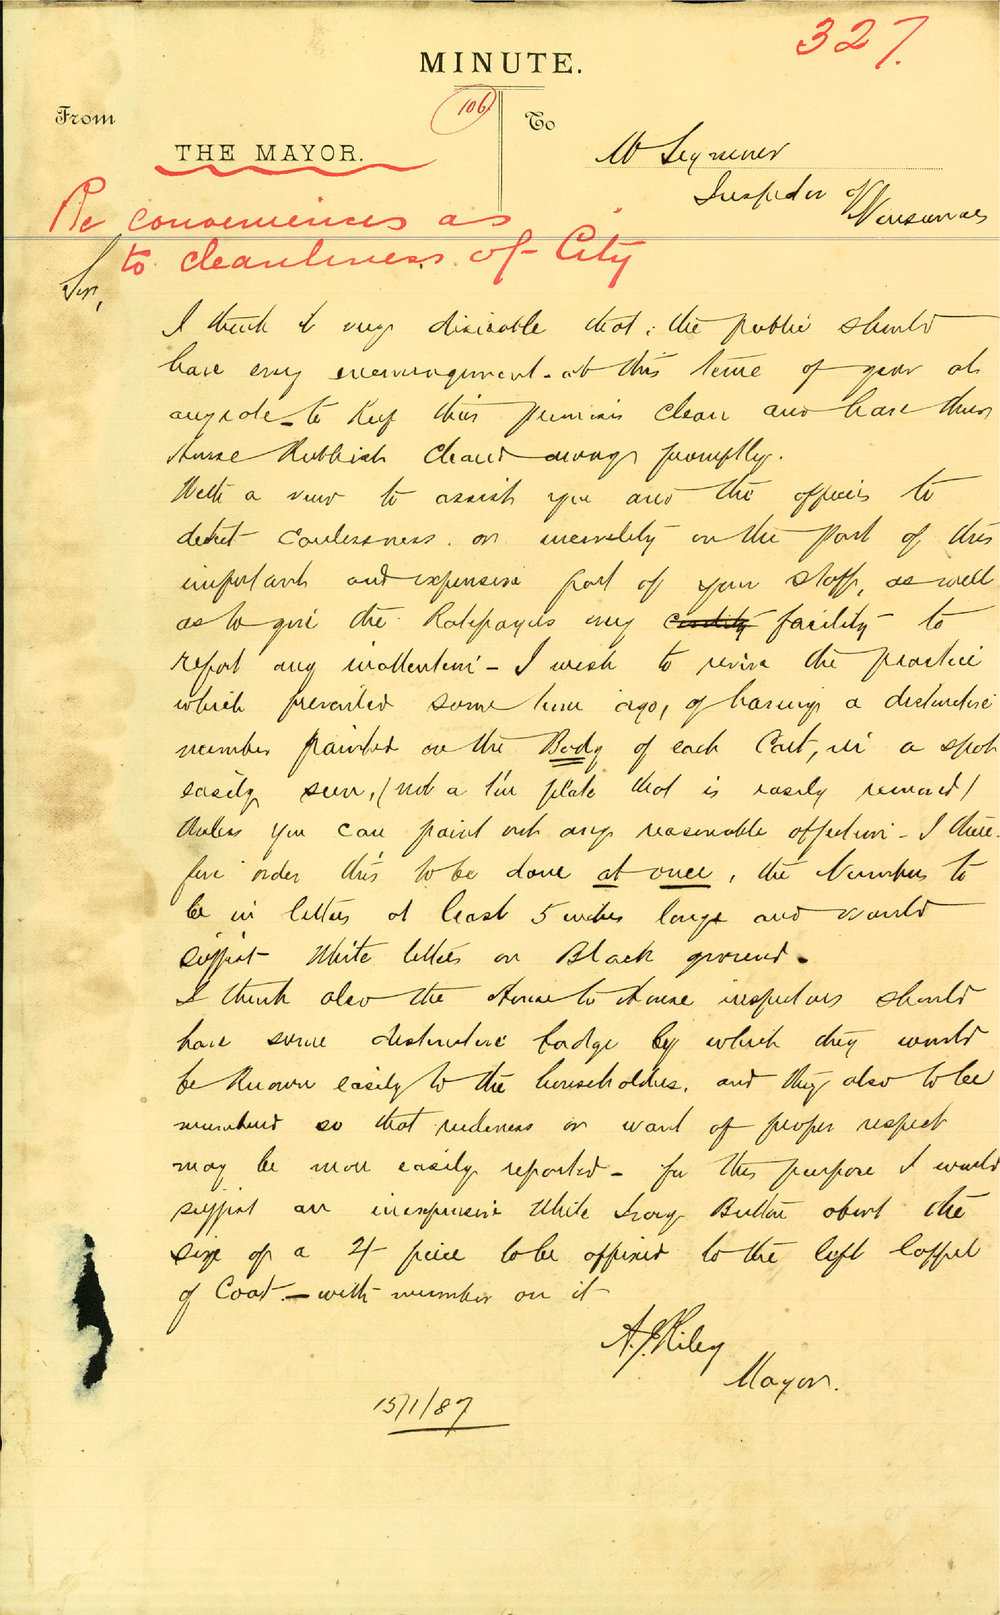 327.
MINUTE.
106
From
To
THE MAYOR.
Mr Seymour
Inspector of Nuisances
Re conveniences as
to cleanliness of City
Sir,
I think it very disirable that the public should
have every encouragement - at this time of year at
anyrate - to Keep their premises clean and have their
House Rubbish cleared away promptly.
With a view to assist you and the officers to
detect carelessness or incivility on the part of this
important and expensive part of your staff, as well
as to give the Ratepayers every facility to
report any inattention - I wish to revive the practice
which prevailed some time ago, of having a distinctive
number painted on the Body of each Cart, in a spot
easily seen, (not a tin plate that is easily removed)
Unless you can point out any reasonable objection - I there-
fore order this to be done at once, the Numbers to
be in letters at least 5 inches long and would
suggest White letters on Black ground.
I think also the House to House inspectors should
have some distinctive badge by which they would
be Known easily to the householders, and they also to be
numbered so that rudeness or want of proper respect
may be more easily reported - for this purpose I would
suggest an inexpensive White Ivory Button about the
size of a 2/- piece to be affixed to the left lappel
of Coat - with number on it
A.J. Riley
Mayor.
15/1/87